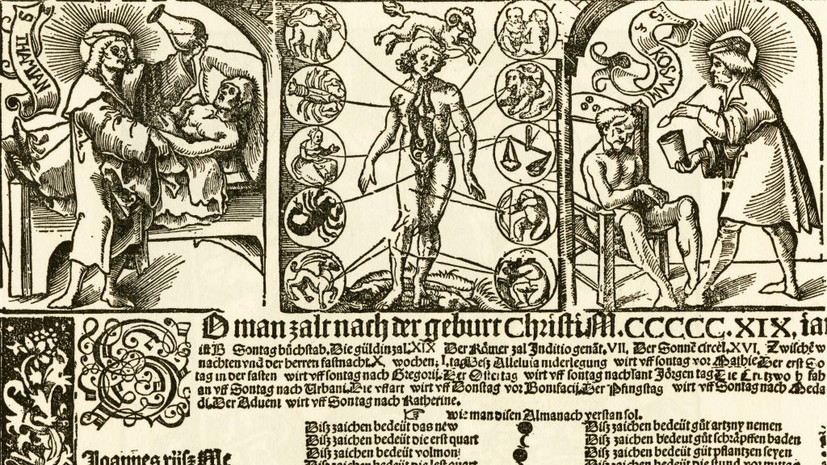 O man zalt nach der geburt Christi M.CCCCC.XIX, iar
ist B Sontag bůchstab. Die güldin zal XIX Der Römer zal Inditio genāt, VII. Der Sonnē circel, XVI, Zwischē w
nachten vnd der herren fastnacht X wochen; Alleluia niderlegung wirt vff sontag vor Mathie Der erst So
tag in der fasten wirt vff sontag nach Gregorij Der Ostertag wirt vff sontag nach sant Jörgen tag Die
an vff Sontag nach Urbani. Die vffart wirt vff Donstag vor Bonifacij. Der Pfingstag wirt vff Sontag nach Meda
di. Der Aduent wirt vff Sontag nach Katherine.
☞ wie man disen Almanach verstan sol.
Diß zaichen bedeüt das new
Diß zaichen bedeüt gůt artzny nemen
Diß zaichen bedeüt die erst quart
Diß zaichen bedeüt gůt schräpffen baden
Diß zaichen bedeüt volmon
Diß zaichen bedeüt gůt pflantzen seyen
Joannes
Diß zaichen bedeüt die
Diß zaichen bedeüt die stund